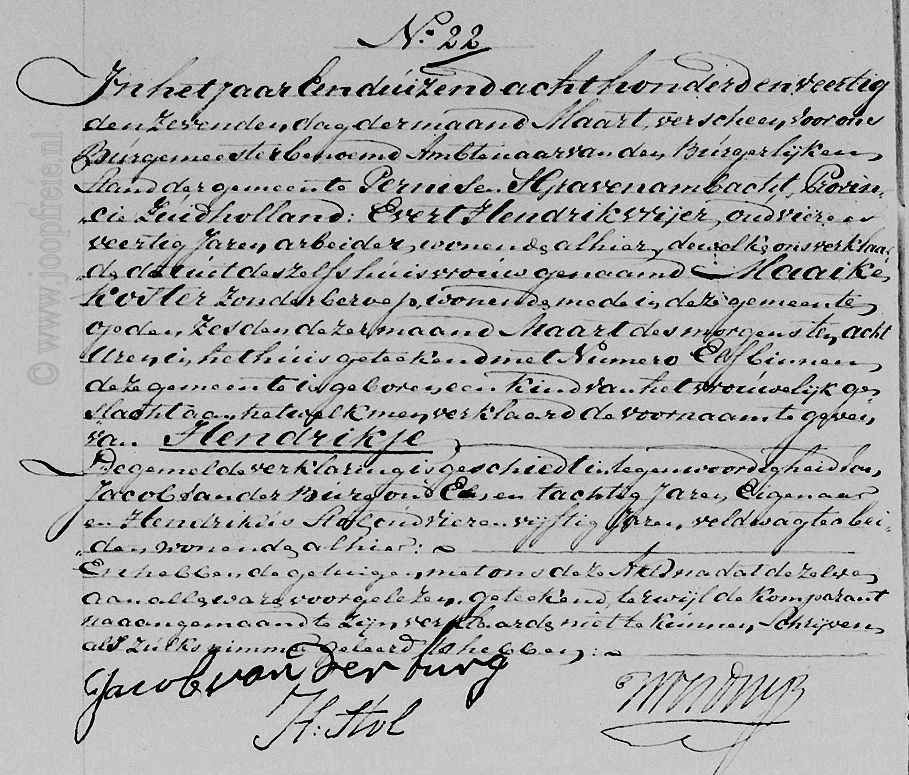 No. 22
In het jaar Eenduizend acht honderd en veertig
den zevenden dag der maand Maart, verscheen voor ons
Burgemeester benoemd Ambtenaar van den Burgerlijken
Stand der gemeente Pernis en SGravenambacht, Provin-
cie Zuidholland: Evert Hendriksvrijer, oud vier en
veertig Jaren, arbeider, wonende alhier, dewelke ons verklaar-
de dat uit deszelfs huisvrouw genaamd Maaike
Koster zonder beroep, wonende mede in deze gemeente
op den Zesden dezer maand Maart des morgens ten acht
Uren, in het huis geteekend met Numero Elf binnen
deze gemeente is geboren een Kind van het vrouwelijk ge-
slacht aan het welk men verklaard de voornaam te geven
van Hendrikje
De gemelde verklaring is geschiedt in tegenwoordigheid van
Jacob van der Burg oud Een en tachtig Jaren, Eigenaar
en Hendrikus Stol oud vier en vijftig Jaren, veldwagter bei-
den wonende alhier:
En hebben de getuigen met ons deze Akt nadat dezelve
aan alle was voorgelezen, geteekend, terwijl de komparant
na aangemaand te zijn, verklaarde niet te kunnen Schrijven
als zulks nimmer geleerd te hebben:
Jacob van Der burg
H: Stol
© www.joopfreie.nl